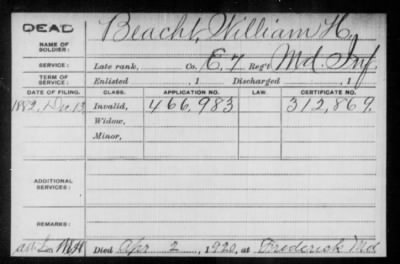 DEAD
NAME OF SOLDIER: Beacht, William H.
SERVICE: Late rank, Co. E. 7 Reg't Md. Inf.
TERM OF SERVICE: Enlisted , 1 Discharged , 1
DATE OF FILING. CLASS. APPLICATION NO. LAW. CERTIFICATE NO.
1882, Dec 13 Invalid, 466,983 312,869.
Widow,
Minor,
ADDITIONAL SERVICES:
REMARKS:
Died Apr 2, 1920, at Frederick Md